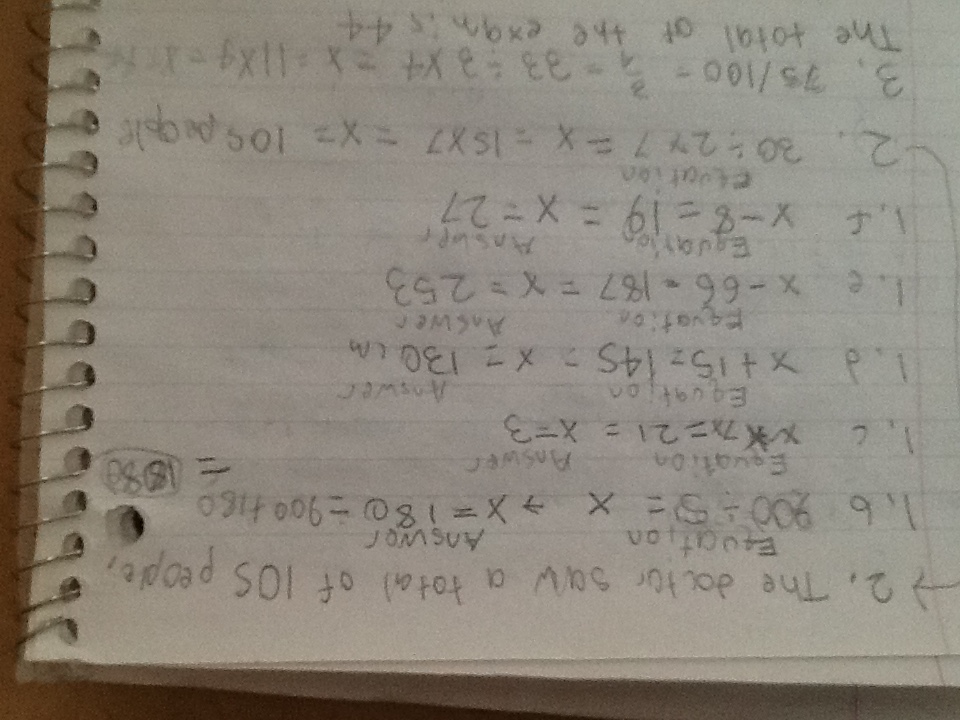 → 2. The doctor saw a total of 105 people,
Equation Answer
1. b 900 ÷ 5 = x → x = 180 = 900 + 180
= 1080
Equation Answer
1. c x = 21 = x = 3
Equation Answer
1. d x + 15 = 145 = x = 130 cm
Equation Answer
1. e x - 66 = 187 = x = 253
Equation Answer
1. f x - 8 = 19 = x = 27
Equation
2. 30 ÷ 2 x 7 = x = 15 x 7 = x = 105 people
3. 75/100 = 3/4 = 33 ÷ 3 x 4 = x = 11 x 4 = x
The total of the exam is 44